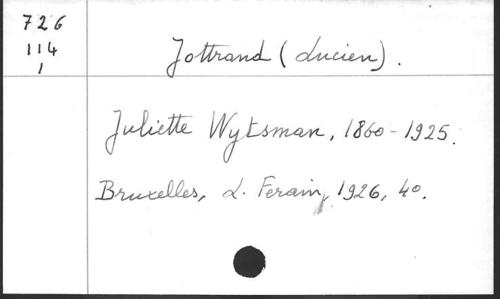 726
114
1
Jottrand (Lucien).
Juliette Wytsman, 1860-1925.
Bruxelles, L. Ferain, 1926, 4o.